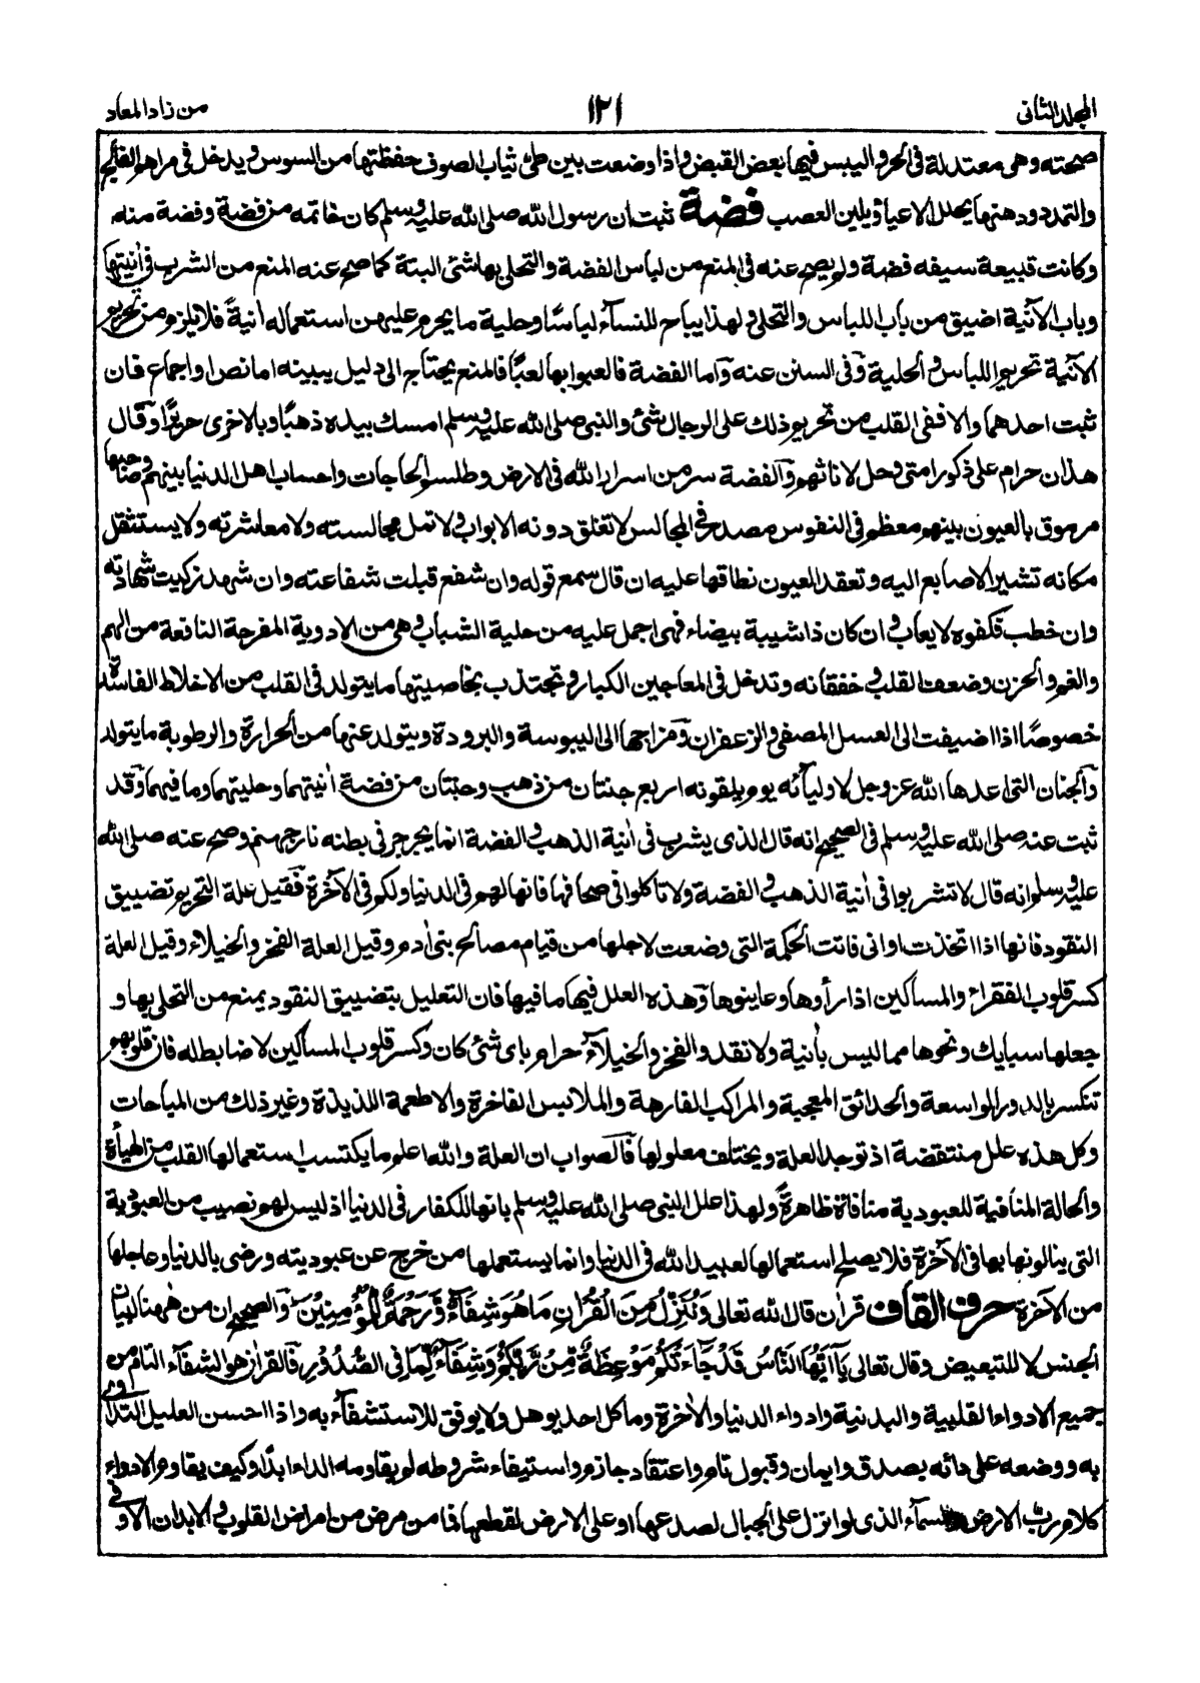 المجلد الثانى
١٢١
من زاد المعاد
صحته وهى معتدلة فى الحر واليبس فيها بعض القبض واذا وضعت بين طى ثياب الصوف حفظتها من السوس ويدخل فى مراهم الفالج
والتمدد ودهنها يحلل الاعياء ويلين العصب فضة ثبت ان رسول الله صلى الله عليه وسلم كان خاتمه من فضة وفضة منه
وكانت قبيعة سيفه فضة ولم يصح عنه فى المنع من لباس الفضة والتحلى بها شئ البتة كما صح عنه المنع من الشرب فى اٰنيتها
وباب الآنية اضيق من باب اللباس والتحلى ولهذا يباح للنسآء لباسًا وحلية ما يحرم عليهن استعماله اٰنيةً فلا يلزم من تحريم
الآنية تحريم اللباس والحلية وفى السنن عنه واما الفضة فالعبوا بها لعبًا فالمنع يحتاج الى دليل يبينه اما نص او اجماع فان
ثبت احدهما والا ففى القلب من تحريم ذلك على الرجال شئ والنبى صلى الله عليه وسلم امسك بيده ذهبًا وبالاخرى حريرًا وقال
هذان حرام على ذكور امتى وحل لاناثهم والفضة سر من اسرار الله فى الارض وطلسم الحاجات واحساب اهل الدنيا بينهم وصاحبها
مرموق بالعيون بينهم معظم فى النفوس مصدر فى المجالس لا تغلق دونه الابواب ولا تمل مجالسته ولا معاشرته ولا يستثقل
مكانه تشير الاصابع اليه وتعقد العيون نطاقها عليه ان قال سمع قوله وان شفع قبلت شفاعته وان شهد زكيت شهادته
وان خطب فكفوه لا يعاب وان كان ذا شيبة بيضاء فهى اجمل عليه من حلية الشباب وهى من الادوية المفرحة النافعة من الهم
والغم والحزن وضعف القلب وخفقانه وتدخل فى المعاجين الكبار وتجتذب بخاصيتها ما يتولد فى القلب من الاخلاط الفاسدة
خصوصًا اذا اضيفت الى العسل المصفى والزعفران ومزاجها الى اليبوسة والبرودة ويتولد عنها من الحرارة والرطوبة ما يتولد
والجنان التى اعدها الله عز وجل لاوليآئه يوم يلقونه اربع جنتان من ذهب وجنتان من فضة اٰنيتهما وحليتهما وما فيهما وقد
ثبت عنه صلى الله عليه وسلم فى الصحيح انه قال الذى يشرب فى اٰنية الذهب والفضة انما يجرجر فى بطنه نار جهنم وصح عنه صلى الله
عليه وسلم انه قال لا تشربوا فى اٰنية الذهب والفضة ولا تاكلوا فى صحافها فانها لهم فى الدنيا ولكم فى الآخرة فقيل علة التحريم تضييق
النقود فانها اذا اتخذت اوانى فاتت الحكمة التى وضعت لاجلها من قيام مصالح بنى اٰدم وقيل العلة الفخر والخيلاء وقيل العلة
كسر قلوب الفقراء والمساكين اذا رأوها وعاينوها وهذه العلل فيها ما فيها فان التعليل بتضييق النقود يمنع من التحلى بها و
جعلها سبايك ونحوها مما ليس باٰنية ولا نقد والفخر والخيلآء حرام باى شئ كان وكسر قلوب المساكين لا ضابط له فان قلوبهم
تنكسر بالدور الواسعة والحدائق المعجبة والمراكب الفارهة والملابس الفاخرة والاطعمة اللذيذة وغير ذلك من المباحات
وكل هذه علل منتقضة اذ توجد العلة ويختلف معلولها فالصواب ان العلة والله اعلم ما يكتسب استعمالها القلب من الهيأة
والحالة المنافية للعبودية منافاة ظاهرةً ولهذا علل النبى صلى الله عليه وسلم بانها للكفار فى الدنيا اذ ليس لهم نصيب من العبودية
التى ينالونها بها فى الآخرة فلا يصلح استعمالها لعبيد الله فى الدنيا وانما يستعملها من خرج عن عبوديته ورضى بالدنيا وعاجلها
من الآخرة حرف القاف قراٰن قال الله تعالى وَنُنَزِّلُ مِنَ الْقُرْاٰنِ مَا هُوَ شِفَآءٌ وَّرَحْمَةٌ لِّلْمُؤْمِنِيْنَ والصحيح ان من ههنا لبيان
الجنس لا للتبعيض وقال تعالى يٰٓاَيُّهَا النَّاسُ قَدْ جَآءَتْكُمْ مَوْعِظَةٌ مِّنْ رَّبِّكُمْ وَشِفَآءٌ لِّمَا فِى الصُّدُوْرِ فالقراٰن هو الشفآء التام من
جميع الادواء القلبية والبدنية وادواء الدنيا والاٰخرة وما كل احد يوهل ولا يوفق للاستشفآء به واذا احسن العليل التداوى
به ووضعه على دائه بصدق وايمان وقبول تام واعتقاد جازم واستيفاء شروطه لم يقاومه الداء ابدًا وكيف يقاوم الادواء
كلام رب الارض والسمآء الذى لو انزل على الجبال لصدعها او على الارض لقطعها فما من مرض من امراض القلوب والابدان الا وفى